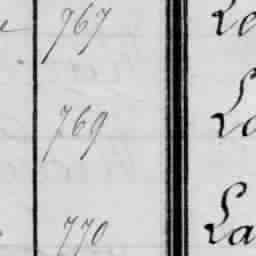 767 Le
769 La
770 La